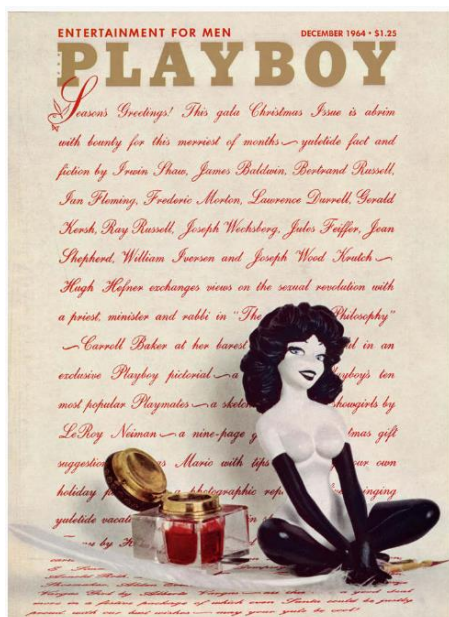 ENTERTAINMENT FOR MEN DECEMBER 1964 • $1.25
PLAYBOY
Season's Greetings! This gala Christmas Issue is abrim
with bounty for this merriest of months — yuletide fact and
fiction by Irwin Shaw, James Baldwin, Bertrand Russell,
Ian Fleming, Frederic Morton, Lawrence Durrell, Gerald
Kersh, Ray Russell, Joseph Wechsberg, Jules Feiffer, Jean
Shepherd, William Iversen and Joseph Wood Krutch —
Hugh Hefner exchanges views on the sexual revolution with
a priest, minister and rabbi in "The Philosophy"
— Carroll Baker at her barest in an
exclusive Playboy pictorial — a ten
most popular Playmates — a showgirls by
LeRoy Neiman — a nine-page gift
Mario with tips own
holiday a photographic
yuletide
by
by Alberto
more in a festive package of which even Santa could be justly
proud with our best wishes — may your yule be cool!